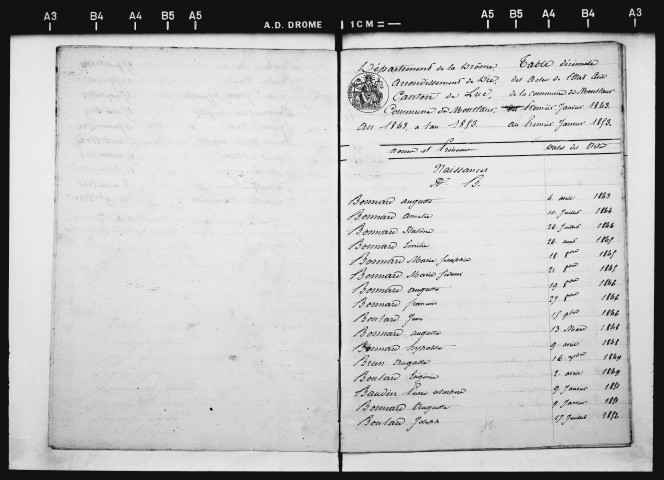 A3 B4 A4 B5 A5 A.D. DROME 1 CM = A5 B5 A4 B4 A3
Département de la Drôme
Arrondissement de Die,
Canton de Luc,
Commune de Montlaur,
an 1843, a l'an 1853.
Table décennale
des Actes de l'Etat Civil
de la commune de Montlaur
Premier Janvier 1843.
au Premier Janvier 1853.
Noms et Prénoms Dates des Actes
Naissances
B.
Bonnard auguste 6 avril 1843
Bonnard Amelie 10 Juillet 1844
Bonnard 26 Juillet 1844
Bonnard Emilie 26 aout 1845
Bonnard Marie Josephine 18 8bre 1845
Bonnard Marie 21 8bre 1845
Bonnard auguste 19 8bre 1846
Bonnard françois 29 8bre 1846
Boulard Jean 15 9bre 1846
Bonnard auguste 13 Mars 1848
Bonnard hypolite 9 avril 1848
Brun Auguste 16 1849
Boulard Eugénie 2 avril 1849
Baudin 9 Janvier 1851
Bonnard Auguste 9 Janvier 1851
Boulard Joseph 17 Juillet 1852